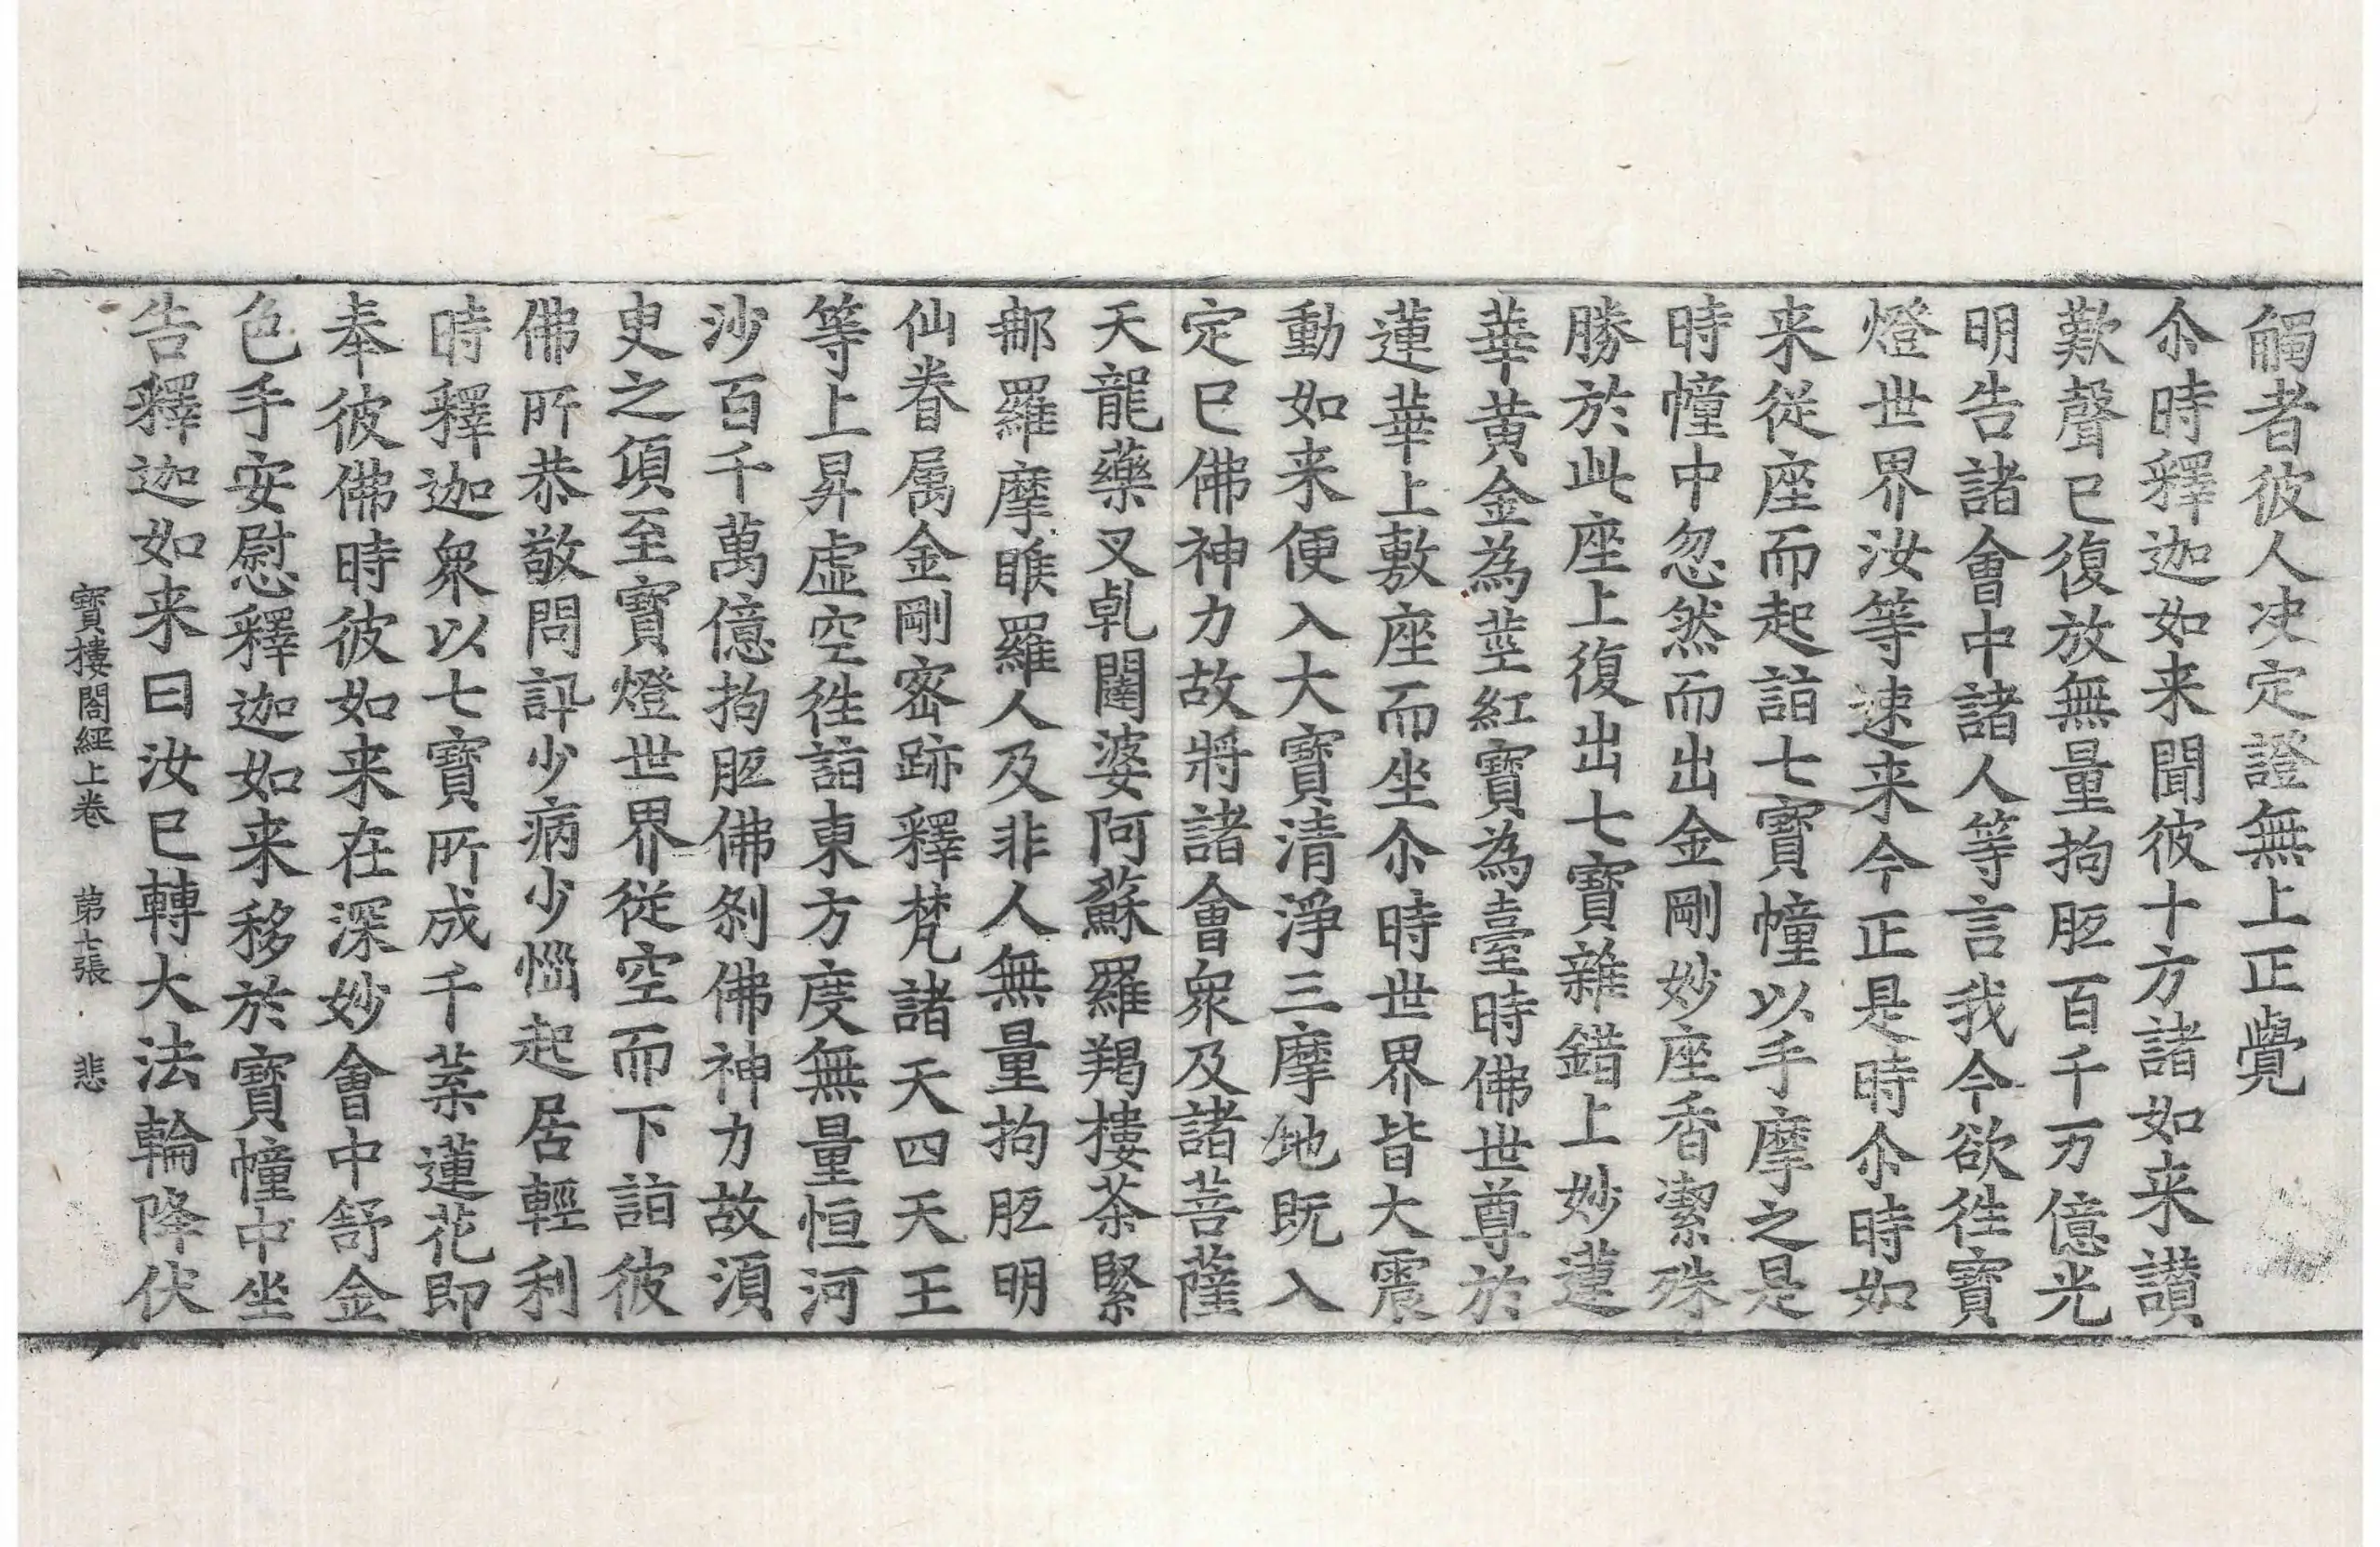 觸者彼人决定證無上正覺
尒時釋迦如来聞彼十方諸如来讃
歎聲已復放無量拘胝百千万億光
明告諸會中諸人等言我今欲徃寳
燈世界汝等速来今正是時尒時如
来從座而起詣七寳幢以手摩之是
時幢中忽然而出金剛妙座香潔殊
勝於此座上復出七寳雜錯上妙蓮
華黄金為莖紅寳為臺時佛世尊於
蓮華上敷座而坐尒時世界皆大震
動如来便入大寳清淨三摩地既入
定已佛神力故將諸會衆及諸菩薩
天龍藥叉乹闥婆阿蘇羅羯樓荼緊
那羅摩睺羅人及非人無量拘胝明
仙眷属金剛宻跡釋梵諸天四天王
等上昇虚空徃詣東方度無量恒河
沙百千萬億拘胝佛刹佛神力故湏
臾之頃至寳燈世界從空而下詣彼
佛所恭敬問訊少病少惱起居輕利
時釋迦衆以七寳所成千葉蓮花即
奉彼佛時彼如来在深妙會中舒金
色手安慰釋迦如来移於寳幢中坐
告釋迦如来曰汝已轉大法輪降伏
寳樓閣經上卷 苐七張 悲